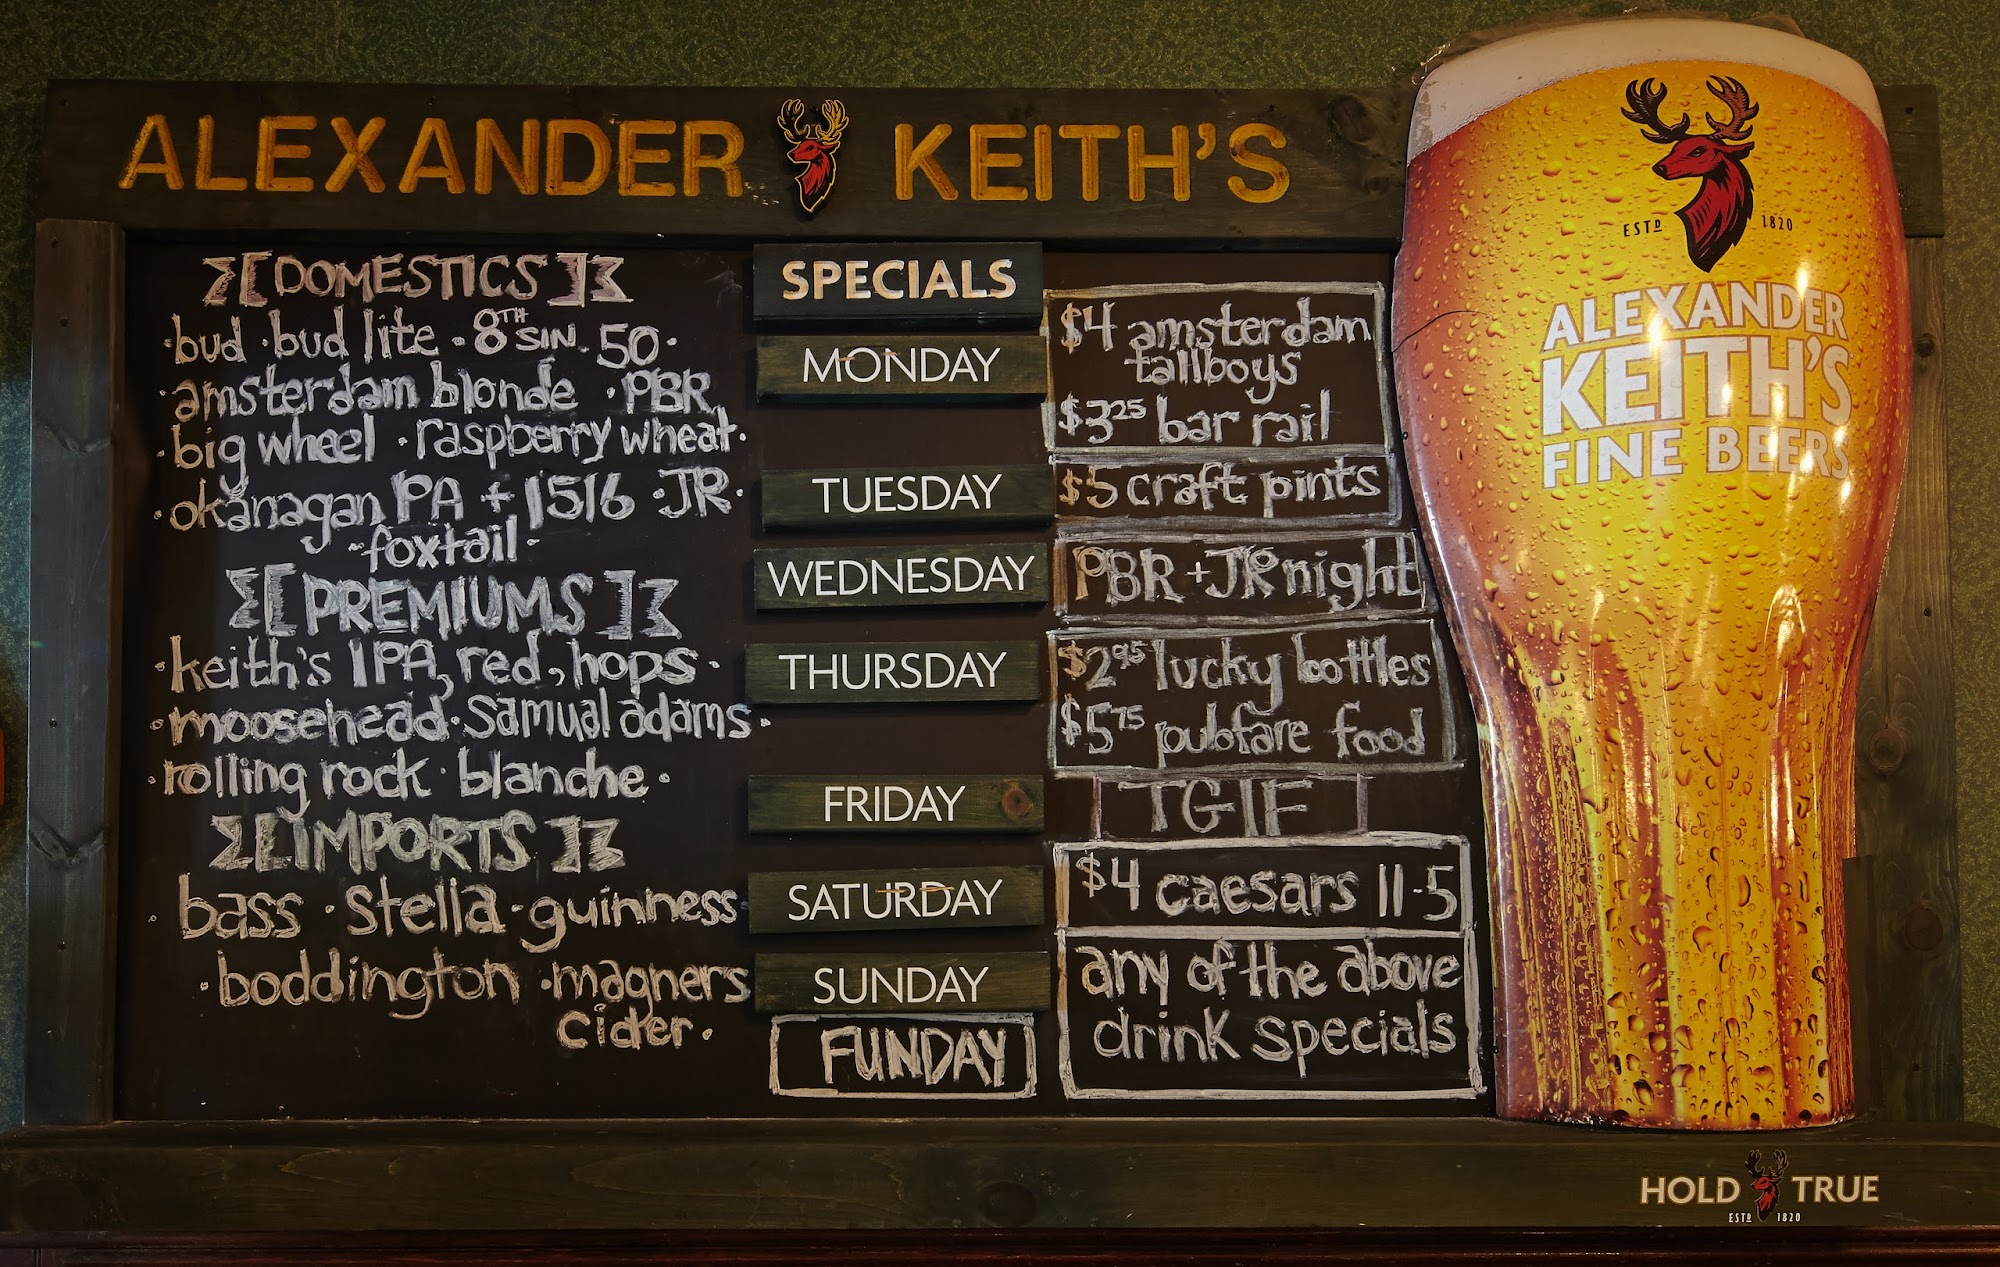 ALEXANDER KEITH'S
[DOMESTICS]
·bud ·bud lite ·8TH SIN· 50·
·amsterdam blonde ·PBR
·big wheel ·raspberry wheat·
·okanagan PA + 1516 ·JR·
·foxtail·
[PREMIUMS]
·keith's IPA, red, hops·
·moosehead·Samual adams·
·rolling rock· blanche·
[IMPORTS]
·bass ·Stella·guinness
·boddington ·magners
cider·
SPECIALS
MONDAY
$4 amsterdam
tallboys
$3.25 bar rail
TUESDAY
$5 craft pints
WEDNESDAY
PBR + JR night
THURSDAY
$2.95 lucky bottles
$5.75 pubfare food
FRIDAY
TGIF
SATURDAY
$4 caesars 11-5
SUNDAY
FUNDAY
any of the above
drink specials
ESTD 1820
ALEXANDER
KEITH'S
FINE BEERS
HOLD TRUE
ESTD 1820